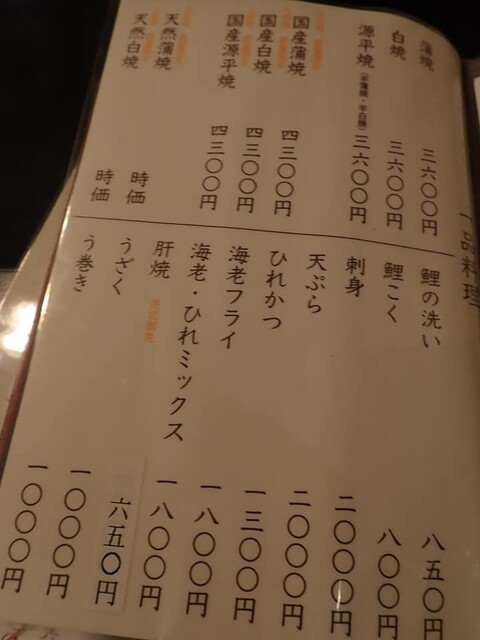 一品料理
蒲焼 三六〇〇円
白焼 三六〇〇円
源平焼(半蒲焼・半白焼)三六〇〇円
国産蒲焼 四三〇〇円
国産白焼 四三〇〇円
国産源平焼 四三〇〇円
天然蒲焼 時価
天然白焼 時価
鯉の洗い 八五〇円
鯉こく 八〇〇円
刺身 二〇〇〇円
天ぷら 二〇〇〇円
ひれかつ 一三〇〇円
海老フライ 一八〇〇円
海老・ひれミックス 一八〇〇円
肝焼 六五〇円
うざく 一〇〇〇円
う巻き 一〇〇〇円